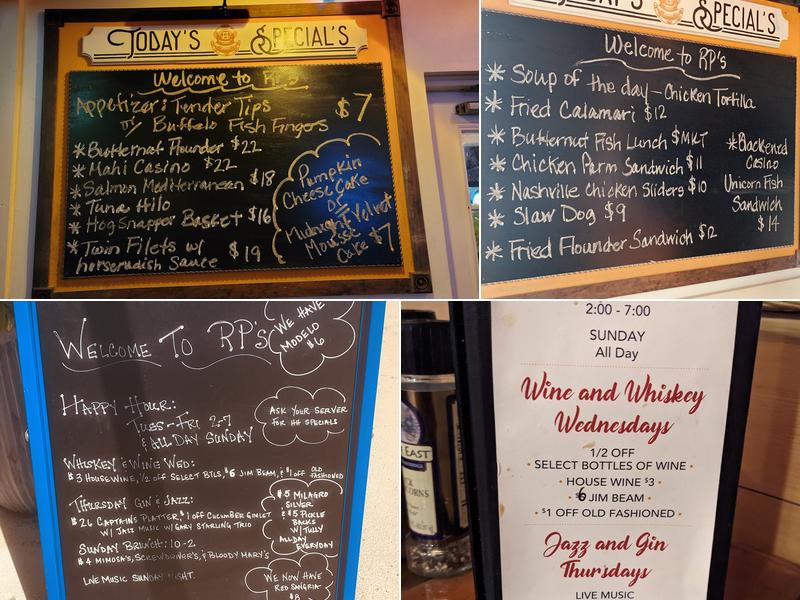 TODAY'S SPECIAL'S
Welcome to RP's
Appetizer: Tender Tips $7
or Buffalo Fish Fingers
* Butternut Flounder $22
* Mahi Casino $22
* Salmon Mediterranean $18
* Tuna Hilo
* Hog Snapper Basket $16
* Twin Filets w/ $19
horseradish Sauce
Pumpkin
Cheese Cake
or
Midnight Velvet
Mousse
Cake $7
TODAY'S SPECIAL'S
Welcome to RP's
* Soup of the day - Chicken Tortilla
* Fried Calamari $12
* Butternut Fish Lunch $MKT
* Chicken Parm Sandwich $11
* Nashville Chicken Sliders $10
* Slaw Dog $9
* Fried Flounder Sandwich $12
* Blackened
Casino
Unicorn Fish
Sandwich
$14
WELCOME TO RP'S
WE HAVE
MODELO
$6
HAPPY HOUR:
TUES-FRI 2-7
& ALL DAY SUNDAY
ASK YOUR SERVER
FOR HH SPECIALS
WHISKEY & WINE WED:
$3 HOUSE WINE, 1/2 OFF SELECT BTLS, $6 JIM BEAM, & $1 OFF OLD FASHIONED
THURSDAY GIN & JAZZ:
$26 CAPTAIN'S PLATTER, $1 OFF CUCUMBER GIMLET
W/ JAZZ MUSIC W/ GARY STARLING TRIO
SUNDAY BRUNCH: 10-2
$4 MIMOSA'S, SCREWDRIVER'S, & BLOODY MARY'S
LIVE MUSIC SUNDAY NIGHT.
$5 MILAGRO
SILVER
& $5 PICKLE
BACKS
W/ TULLY
ALL DAY
EVERYDAY
WE NOW HAVE
RED SANGRIA
$8
2:00 - 7:00
SUNDAY
All Day
Wine and Whiskey
Wednesdays
1/2 OFF
• SELECT BOTTLES OF WINE •
• HOUSE WINE $3 •
• $6 JIM BEAM •
• $1 OFF OLD FASHIONED •
Jazz and Gin
Thursdays
LIVE MUSIC
EAST